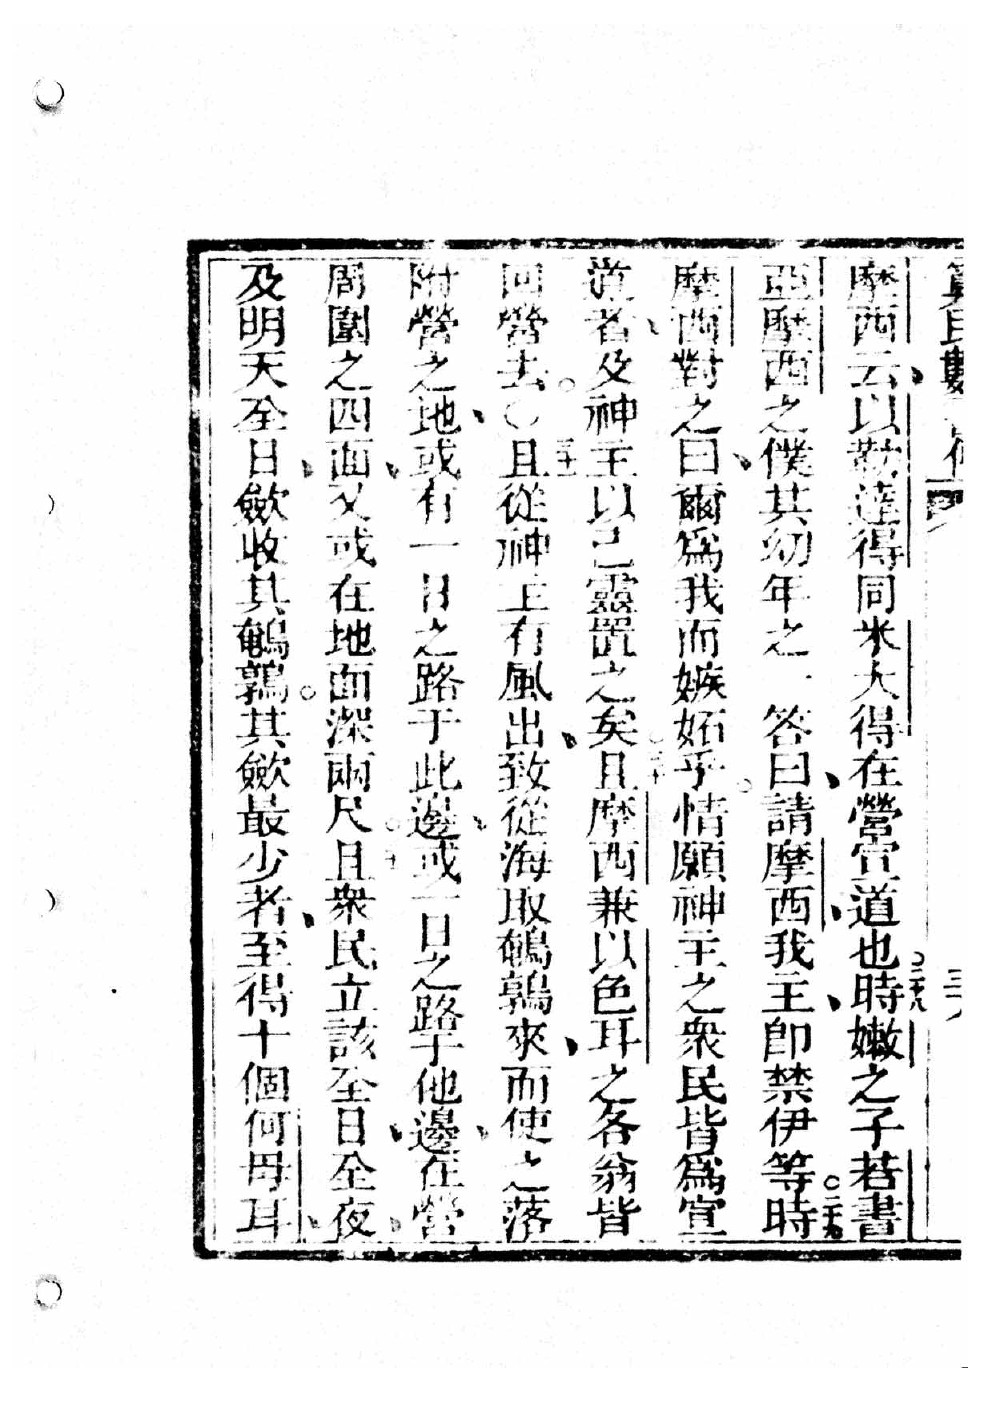 摩西云以勒達得同米大得在營宣道也二十八時嫩之子若書
亞摩西之僕其幼年之一答曰請摩西我主卽禁伊等二十九時
摩西對之曰爾爲我而嫉妬乎情願神主之衆民皆爲宣
道者及神主以己靈置之矣三十且摩西兼以色耳之各翁皆
回營去○三十一且從神主有風出致從海取鵪鶉來而使之落
附營之地或有一日之路于此邊或一日之路于他邊在營
周圍之四面又或在地面深兩尺且衆民立該全日全夜
及明天全日斂收其鵪鶉其斂最少者至得十個何毋耳